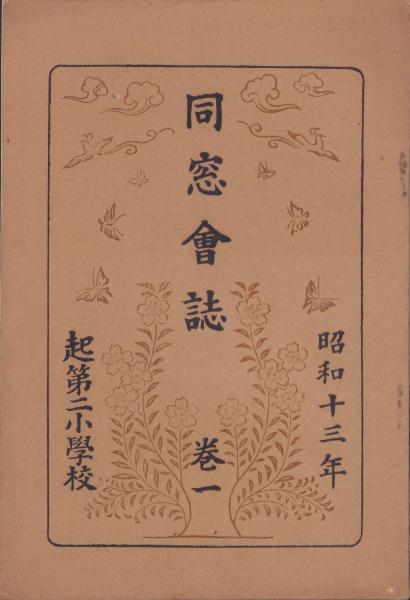 昭和十三年
同窓會誌 卷一
起第二小學校